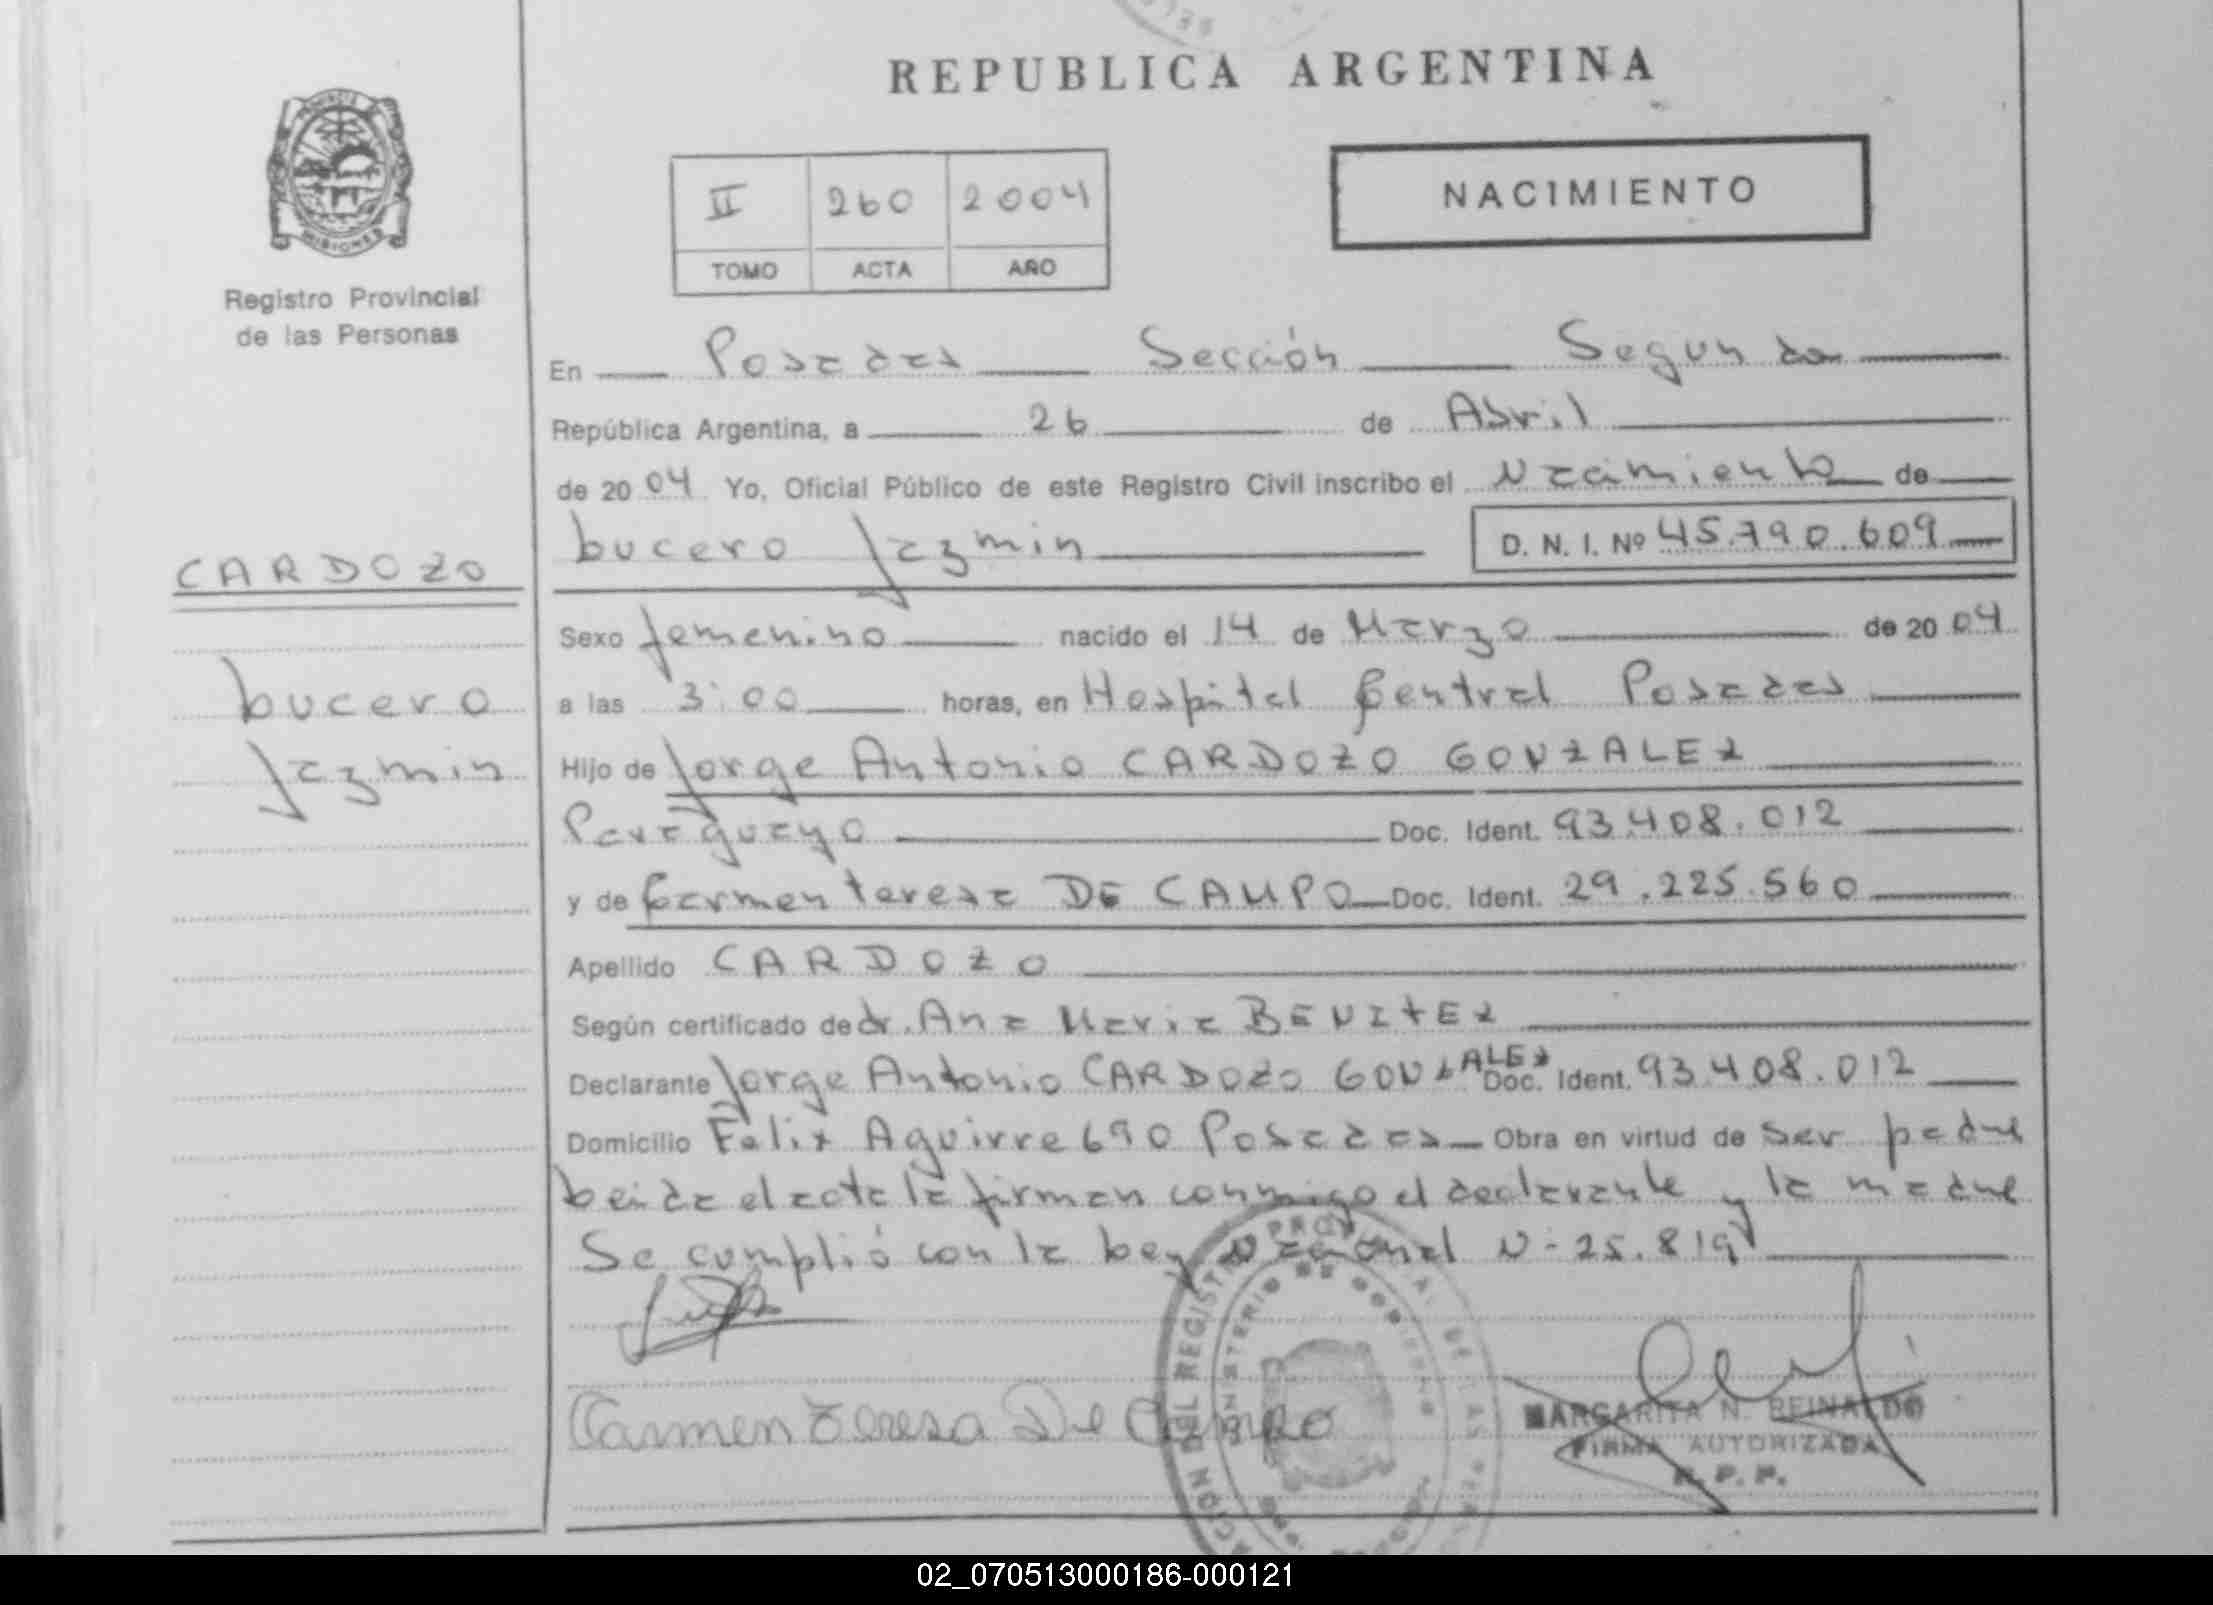 REPUBLICA ARGENTINA
PROVINCIA
MISIONES
Registro Provincial
de las Personas
II 260 2004
TOMO ACTA AÑO
NACIMIENTO
En Posadas Sección Segunda
República Argentina, a 26 de Abril
de 2004 Yo, Oficial Público de este Registro Civil inscribo el Nacimiento de
Lucero Jazmin D. N. I. Nº 45.790.609
CARDOZO
Lucero
Jazmin
Sexo femenino nacido el 14 de Marzo de 2004
a las 3:00 horas, en Hospital Central Posadas
Hijo de Jorge Antonio CARDOZO GONZALEZ
Paraguayo Doc. Ident. 93.408.012
y de Carmen teresa DE CAMPO Doc. Ident. 29.225.560
Apellido CARDOZO
Según certificado de dr. Ana Maria BENITEZ
Declarante Jorge Antonio CARDOZO GONZALEZ Doc. Ident. 93.408.012
Domicilio Felix Aguirre 690 Posadas Obra en virtud de ser padre
Leida el acta la firman conmigo el declarante y la madre
Se cumplió con la Ley Nacional N-25.819
Carmen Teresa De Campo
MARGARITA N. REINALDO
FIRMA AUTORIZADA
R. P. P.
02_070513000186-000121